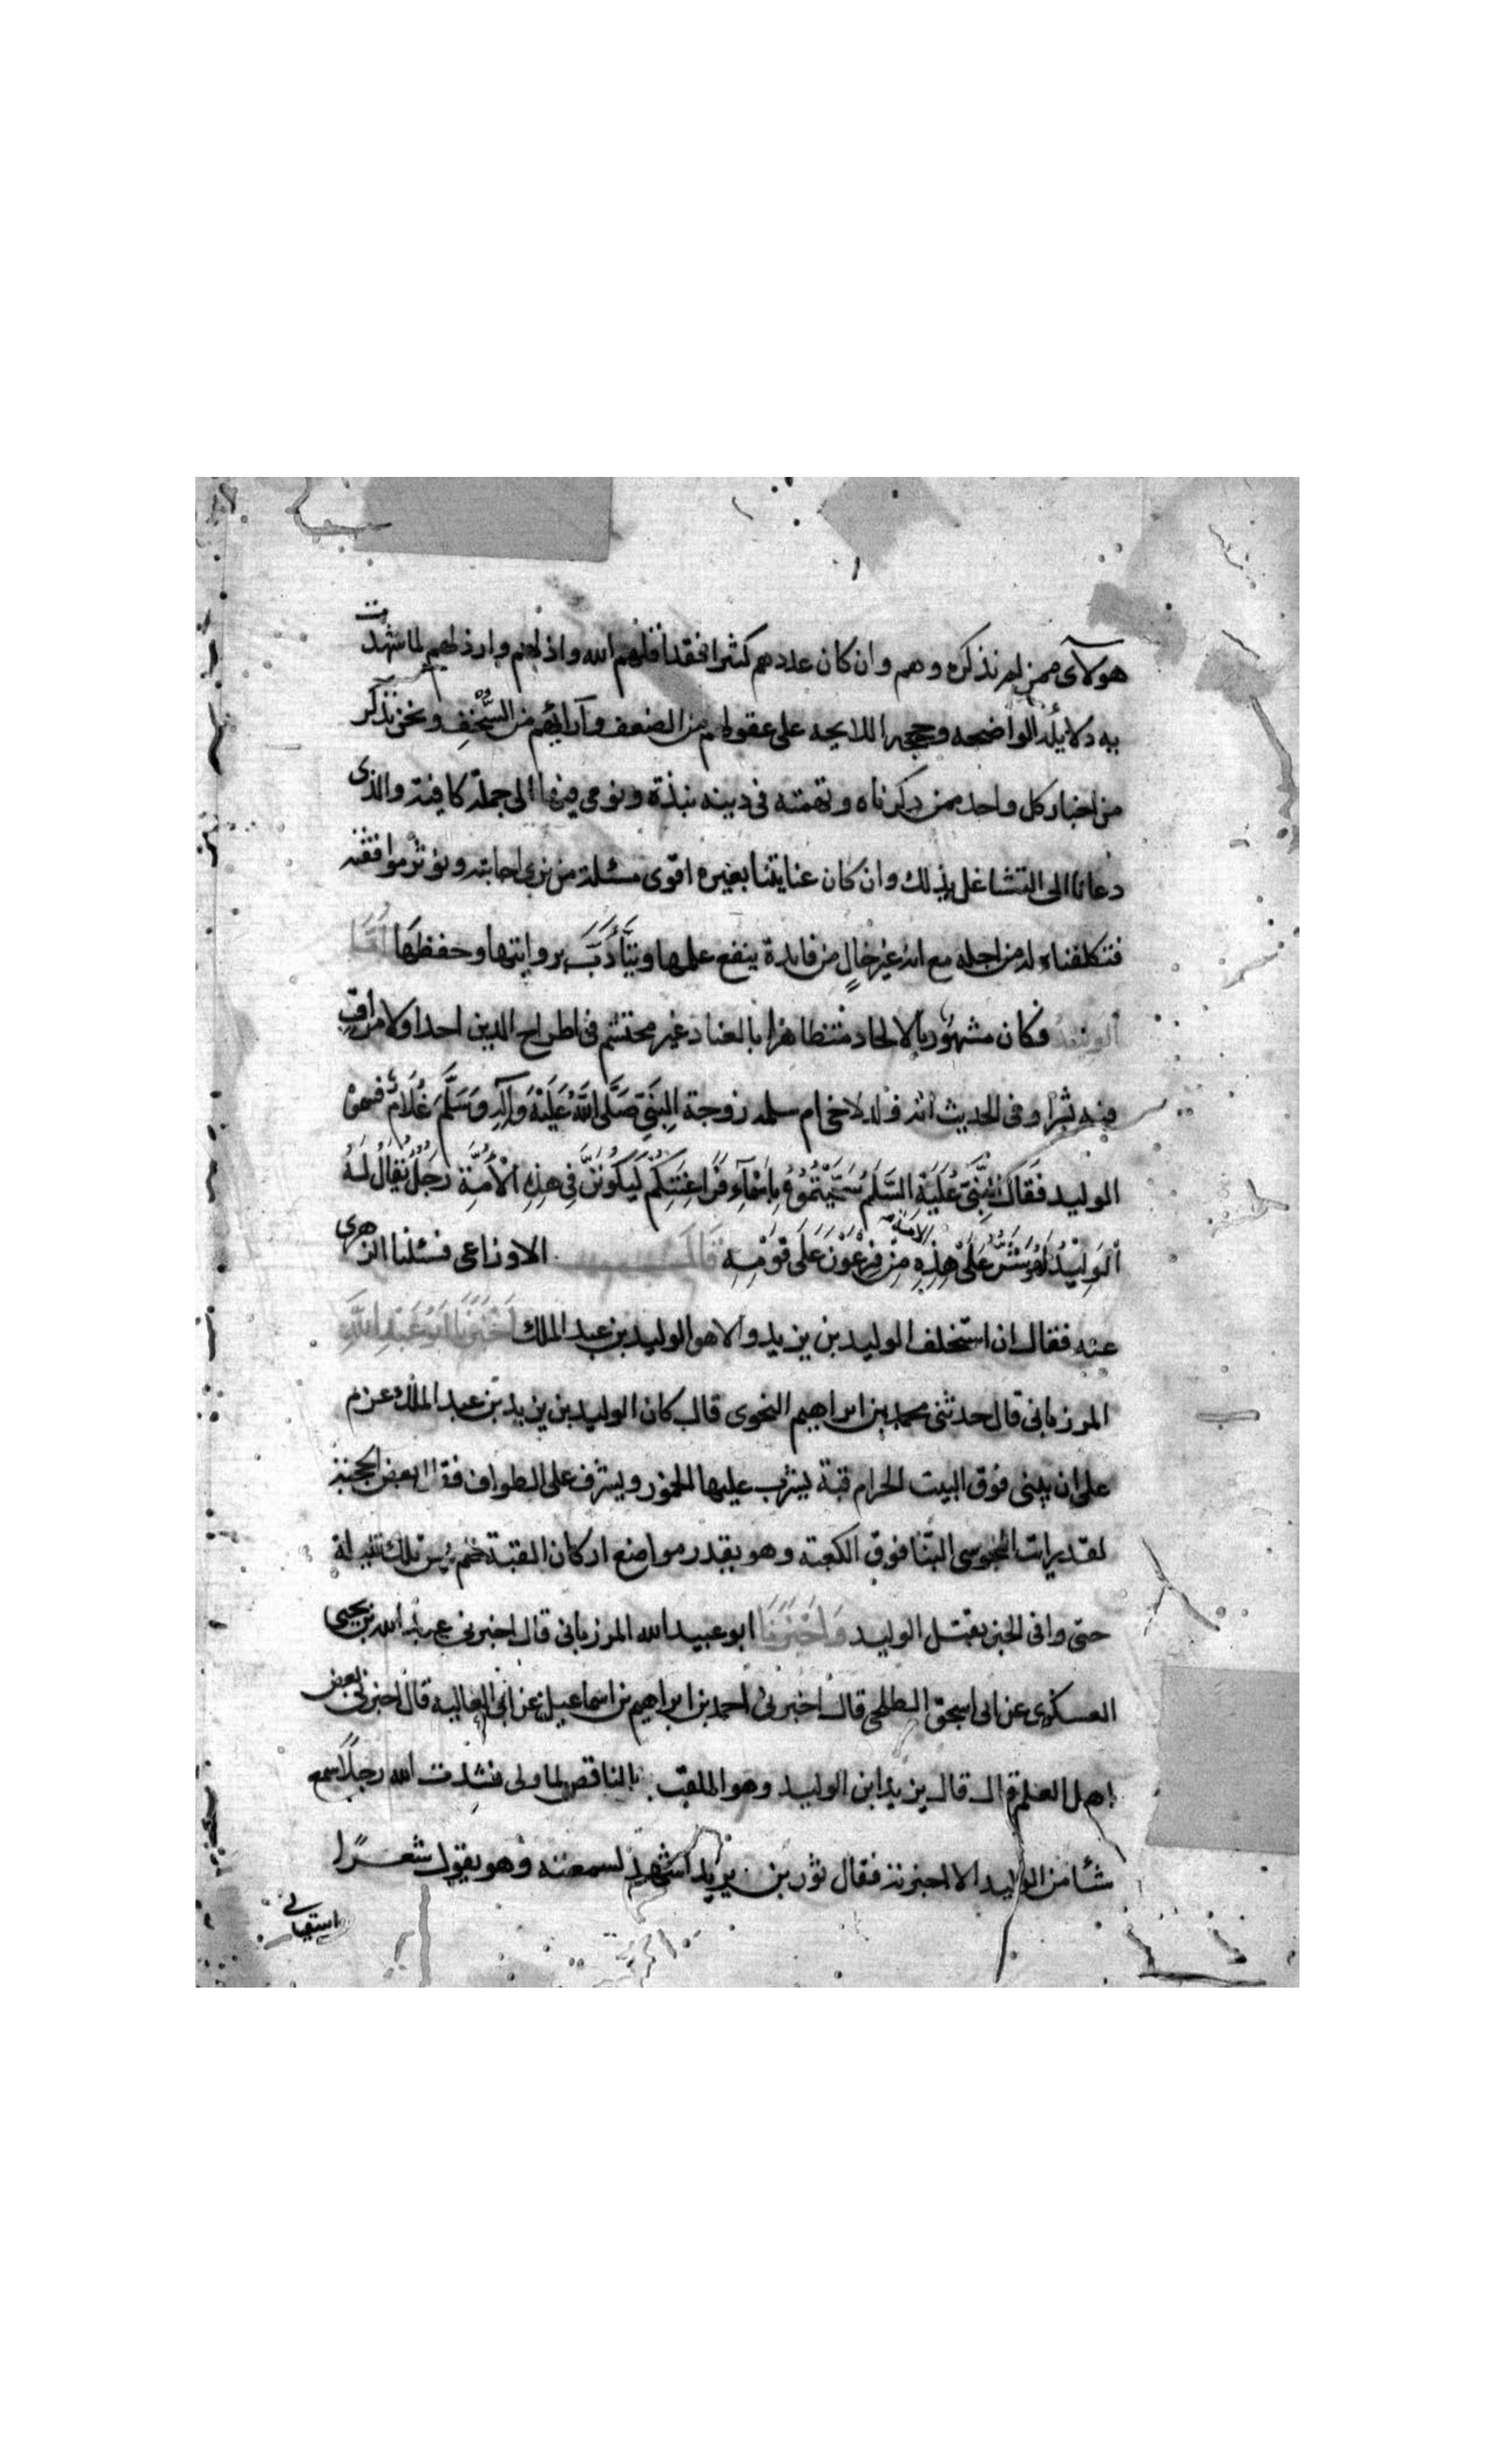 هولآى ممن لم نذكره وهم وان كان عددهم كثيرا فقد اقلهم الله واذلهم وارذلهم لما شهدت
به دلايله الواضحه وحججه اللايحه على عقولهم من الضعف وآرائهم من السُّخفِ ونحن نذكر
من اخبار كل واحد ممن ذكرناه وتهمته فى دينه نبذة ونومى فيها الى جملة كافية والذى
دعانا الى التشاغل بذلك وان كان عنايتنا بغيره اقوى مسئلة من نرى اجابته ونؤثر موافقته
فتكلفناه له من اجله مع انه غير خالٍ من فايدة ينفع علمها ويتأدَّب بروايتها وحفظها اَمَّا
الوليد فكان مشهورا بالالحاد متظاهرا بالعناد غير محتشم فى اطراح الدين احدا ولا مراقبٍ
فيه بشرا وفى الحديث انه ولد لاخى ام سلمه زوجة النَّبىِّ صَلَّى اللهُ عَلَيْهِ وَآلِهِ وَسَلَّمَ غُلَامٌ فسموه
الوليد فَقَالَ النَّبِىُّ عَلَيْهِ السَّلَم سَمَّيْتُمُوهُ بِاَسْمَاءِ فَرَاعِنَتِكُم لَيَكُونَنَّ فِى هذِهِ الْاُمَّةِ رَجُلٌ يُقَالُ لَهُ
اَلْوَلِيْدُ لَهُوَ شَرٌّ عَلَى هذِهِ الامة مِنْ فِرْعَوْنَ عَلَى قَوْمِهِ قَالَ الاوزاعى فسئلنا الزهرى
عنه فقال ان استخلف الوليد بن يزيد والا هو الوليد بن عبد الملك اَخْبَرَنَا اَبُو عَبْدِ اللهِ
المرزبانى قال حدثنى محمد بن ابراهيم النحوى قال كان الوليد بن يزيد بن عبد الملك عزم
على ان يبنى فوق البيت الحرام قبة يشرب عليها الخمور ويشرف على الطواف فقال بعض الحجبة
لقد رايت المجوسى البنا فوق الكعبة وهو يقدر مواضع اركان القبة فلم يمس تلك الليلة
حتى وافى الخبر بقتل الوليد وَاَخْبَرَنَا ابو عبيد الله المرزبانى قال اخبرنى عبد الله بن يحيى
العسكرى عن ابى اسحق الطلحى قال اخبرنى احمد بن ابراهيم بن اسماعيل عن ابى العاليه قال اخبرنى بعض
اهل العلم قال قال يزيد ابن الوليد وهو الملقب بالناقص لما ولى نشدت الله رجلًا سمع
شئا من الوليد الا اخبر به فقال ثور بن يزيد اشهد لسمعته وهو يقول شعرًا
اسقيانى